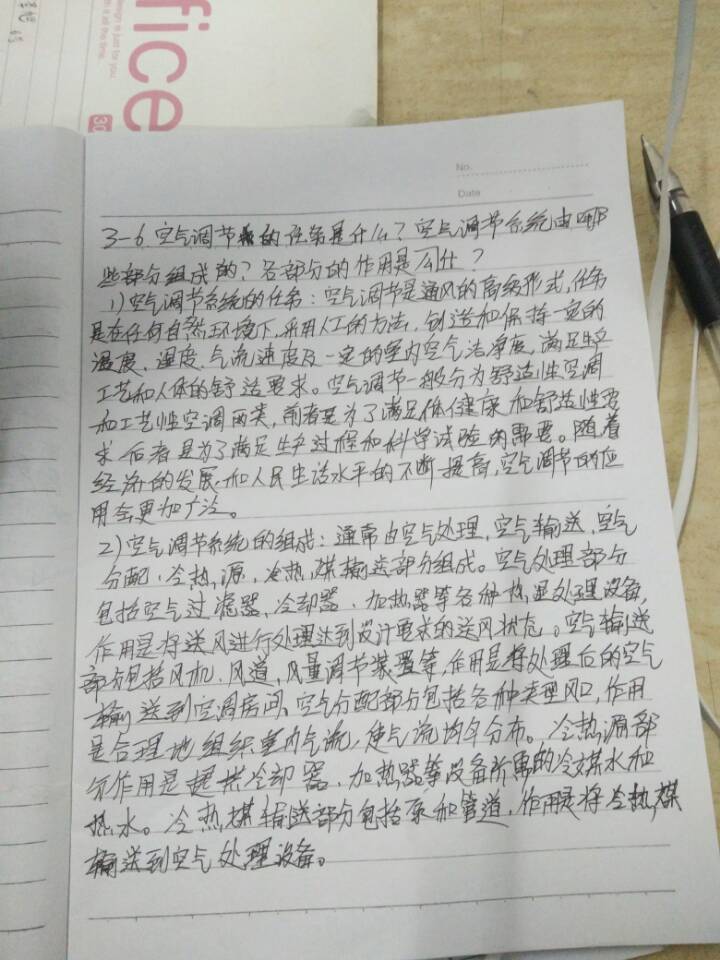 fice
design is just for you
it all the time.
30
No.
Date
3-6 空气调节的任务是什么？空气调节系统由哪
些部分组成的？各部分的作用是什么？
1)空气调节系统的任务：空气调节是通风的高级形式,任务
是在任何自然环境下,采用人工的方法,创造和保持一定的
温度、湿度、气流速度及一定的室内空气洁净度,满足生产
工艺和人体的舒适要求。空气调节一般分为舒适性空调
和工艺性空调两类,前者是为了满足人体健康和舒适性要
求 后者是为了满足生产过程和科学试验的需要。随着
经济的发展,和人民生活水平的不断提高,空气调节的应
用会更加广泛。
2)空气调节系统的组成：通常由空气处理,空气输送,空气
分配、冷热源,冷热媒输送部分组成。空气处理部分
包括空气过滤器、冷却器、加热器等各种热湿处理设备,
作用是将送风进行处理达到设计要求的送风状态。空气输送
部分包括风机、风道、风量调节装置等,作用是将处理后的空气
输送到空调房间、空气分配部分包括各种类型风口,作用
是合理地组织室内气流,使气流均匀分布。冷热源部
分作用是提供冷却器、加热器等设备所需的冷媒水和
热水。冷热媒输送部分包括泵和管道,作用是将冷热媒
输送到空气处理设备。